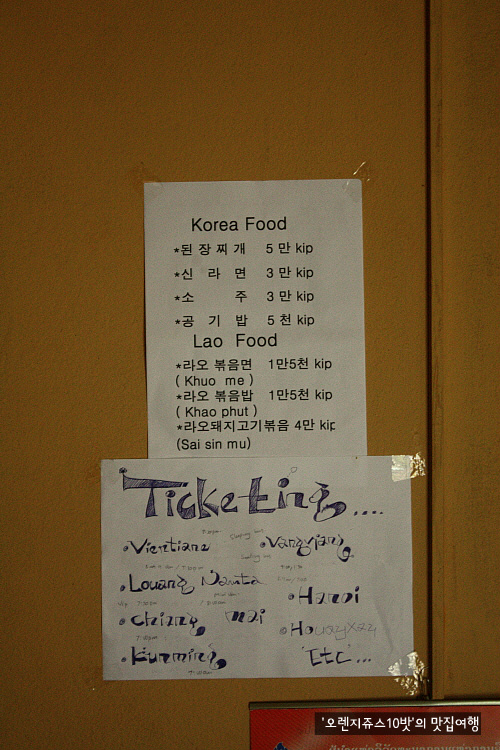 Korea Food
*된장찌개 5 만 kip
*신 라 면 3 만 kip
*소 주 3 만 kip
*공 기 밥 5 천 kip
Lao Food
*라오 볶음면 1만5천 kip
( Khuo me )
*라오 볶음밥 1만5천 kip
( Khao phut )
*라오돼지고기볶음 4만 kip
(Sai sin mu)
Ticketing....
•Vientiane •Vangvjang
•Louang Namta
•Hanoi
•Chiang mai
•Kunming
Etc...
'오렌지쥬스10밧'의 맛집여행